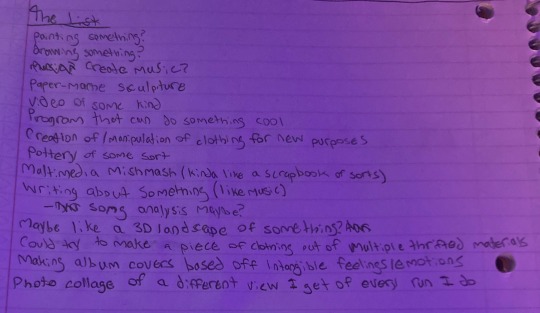 The List
painting something?
drawing something?
Create Music?
Paper-mache sculpture
Video of some kind
Program that can do something cool
Creation of/manipulation of clothing for new purposes
Pottery of some sort
Multimedia Mishmash (kinda like a scrapbook of sorts)
Writing about Something (like Music)
- song analysis Maybe?
Maybe like a 3D landscape of something?
Could try to make a piece of clothing out of multiple thrifted materials
Making album covers based off intangible feelings/emotions
Photo collage of a different view I get of every run I do